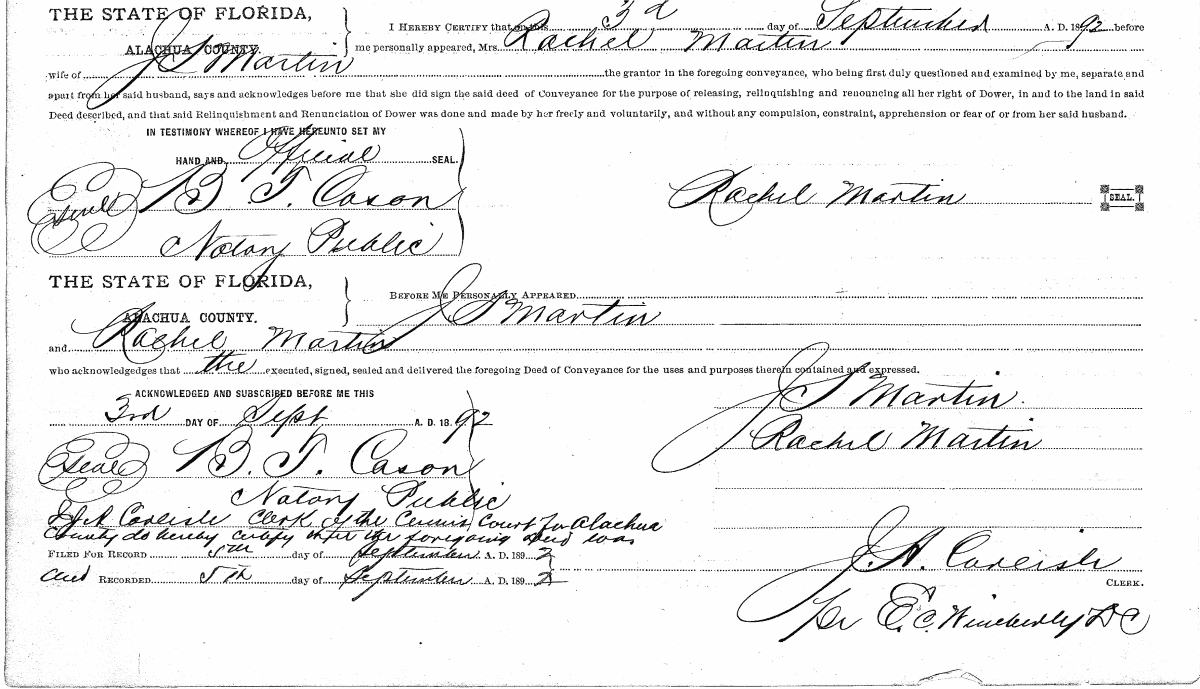 THE STATE OF FLORIDA,
ALACHUA COUNTY.
I HEREBY CERTIFY that on this 3d day of September A. D. 1892 before
me personally appeared, Mrs. Rachel Martin
wife of J S Martin the grantor in the foregoing conveyance, who being first duly questioned and examined by me, separate and
apart from her said husband, says and acknowledges before me that she did sign the said deed of Conveyance for the purpose of releasing, relinquishing and renouncing all her right of Dower, in and to the land in said
Deed described, and that said Relinquishment and Renunciation of Dower was done and made by her freely and voluntarily, and without any compulsion, constraint, apprehension or fear of or from her said husband.
IN TESTIMONY WHEREOF I HAVE HEREUNTO SET MY
HAND AND Official SEAL.
Seal B. T. Cason
Notary Public
Rachel Martin SEAL.
THE STATE OF FLORIDA,
ALACHUA COUNTY.
BEFORE ME PERSONALLY APPEARED J S Martin
and Rachel Martin
who acknowledges that the executed, signed, sealed and delivered the foregoing Deed of Conveyance for the uses and purposes therein contained and expressed.
ACKNOWLEDGED AND SUBSCRIBED BEFORE ME THIS
3rd DAY OF Sept A. D. 1892
Seal B. T. Cason
Notary Public
J S Martin
Rachel Martin
I J A Carlisle Clerk of the Circuit Court for Alachua
County do hereby certify that the foregoing Deed was
FILED FOR RECORD 5th day of September A. D. 1892
and RECORDED 5th day of September A. D. 1892
J. A. Carlisle
CLERK.
Per E. C. Wimberly DC